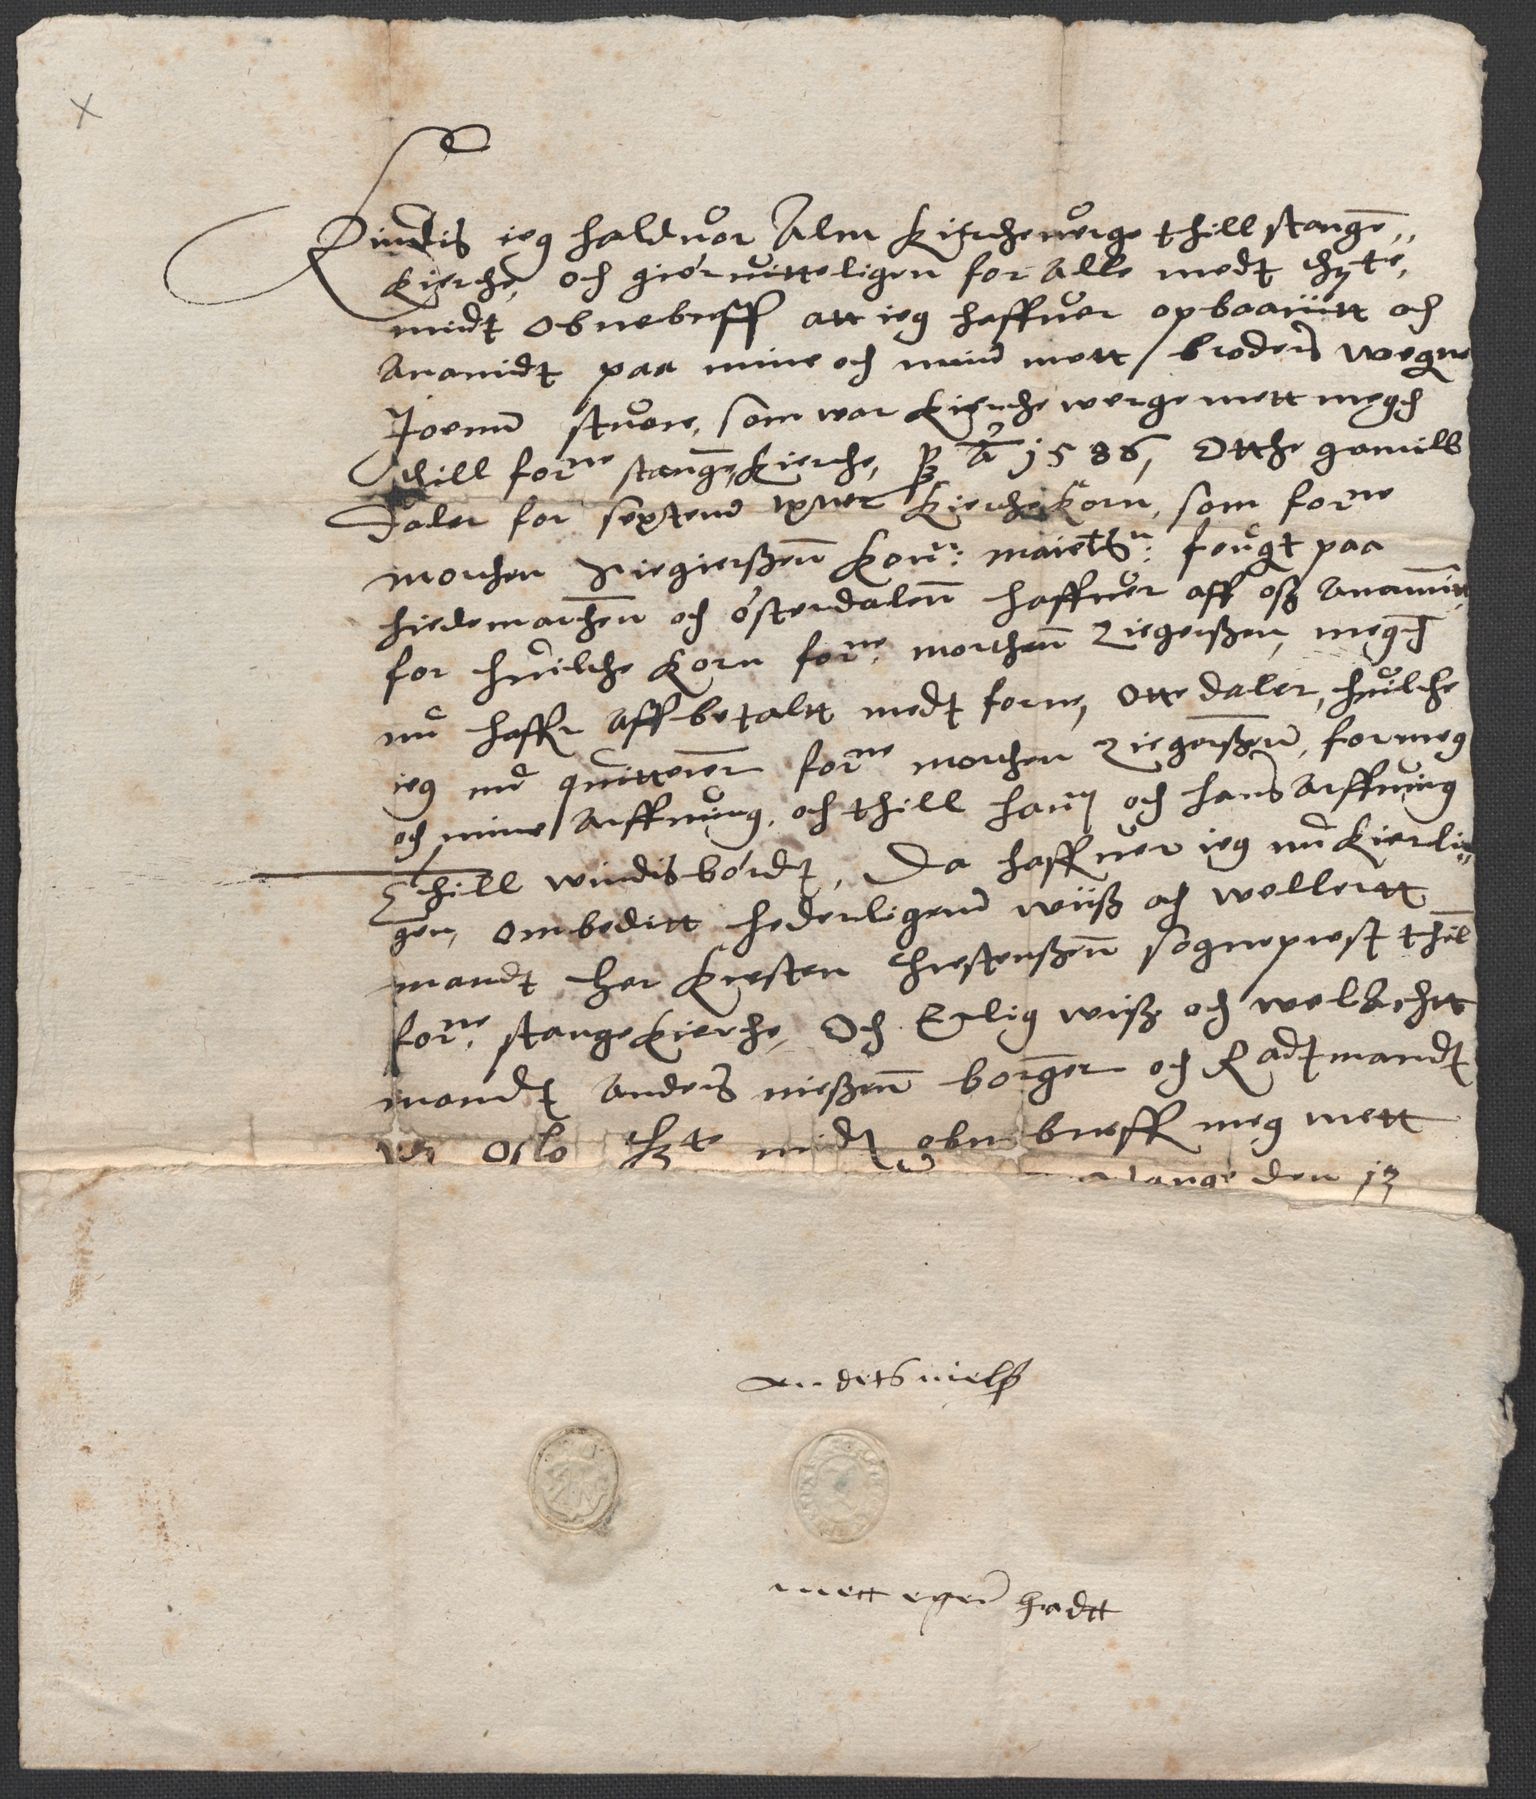 Kindis ieg haldvor Alm Kircheverge thill stange,,
Kierche, och giør vitteligen for Alle medt thzte,
midt obnebreff att ieg haffver opbaariitt och
Anamidt paa mine och miind mett broders wegne
Joenn stvere, som war kierche werge mett megh
thill forne stange, Kierche, p Ao 1586, Otthe gamill
Daler for sextend tpner Kierche Korn, som forne
morthen Ziegierßenn Konn: maietts: fougt paa
hiedemarchen och østerdalenn haffver aff oß Anammit
for huilche Korn forne morthenn Ziegerßen, megh
nu haffr aff betaltt medt forne, Otte daler, huilche
ieg nu quitterer forne morthen Ziegerßenn, for meg
och mine Arffving, och thill hanß och hans Arffving
Thill vindisbørdt, Da haffver ieg nu kierli,,
gen, ombeditt hederligend wiiß och wellertt
mandt her kresten Chrestenßenn sogneprest thill
forne stange Kierche, Och Erlig wiß och welachtt
mandt Anders nielßenn borger och Radtmandt
udj Oslo thzte midt obne breff meg mett
stange den 13
anders nielß
mett egen hadtt